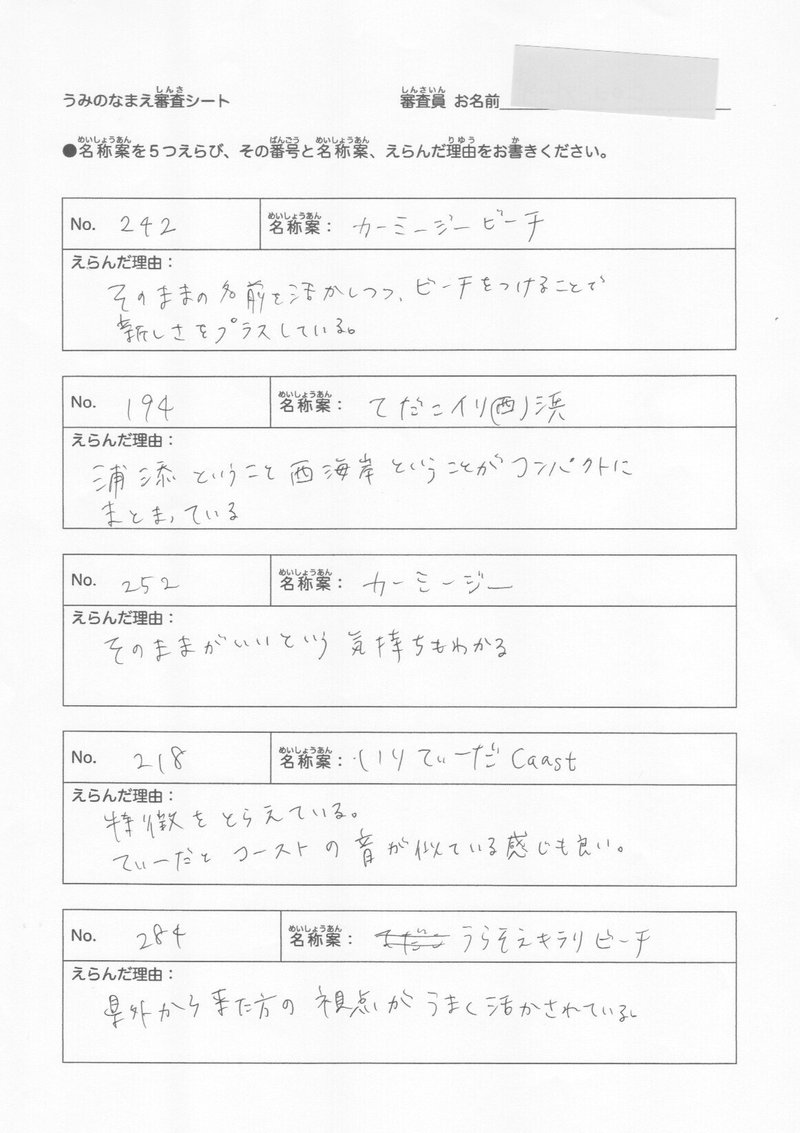 うみのなまえ審査シート 審査員 お名前
●名称案を5つえらび、その番号と名称案、えらんだ理由をお書きください。
No. 242 名称案： カーミージービーチ
えらんだ理由：
そのままの名前を活かしつつ、ビーチをつけることで
新しさをプラスしている。
No. 194 名称案： てだこイリ(西)浜
えらんだ理由：
浦添ということと西海岸ということがコンパクトに
まとまっている
No. 252 名称案： カーミージー
えらんだ理由：
そのままがいいという気持ちもわかる
No. 218 名称案： いりてぃーだ Caast
えらんだ理由：
特徴をとらえている。
てぃーだとコーストの音が似ている感じも良い。
No. 284 名称案： うらそえキラリビーチ
えらんだ理由：
県外から来た方の視点がうまく活かされている。